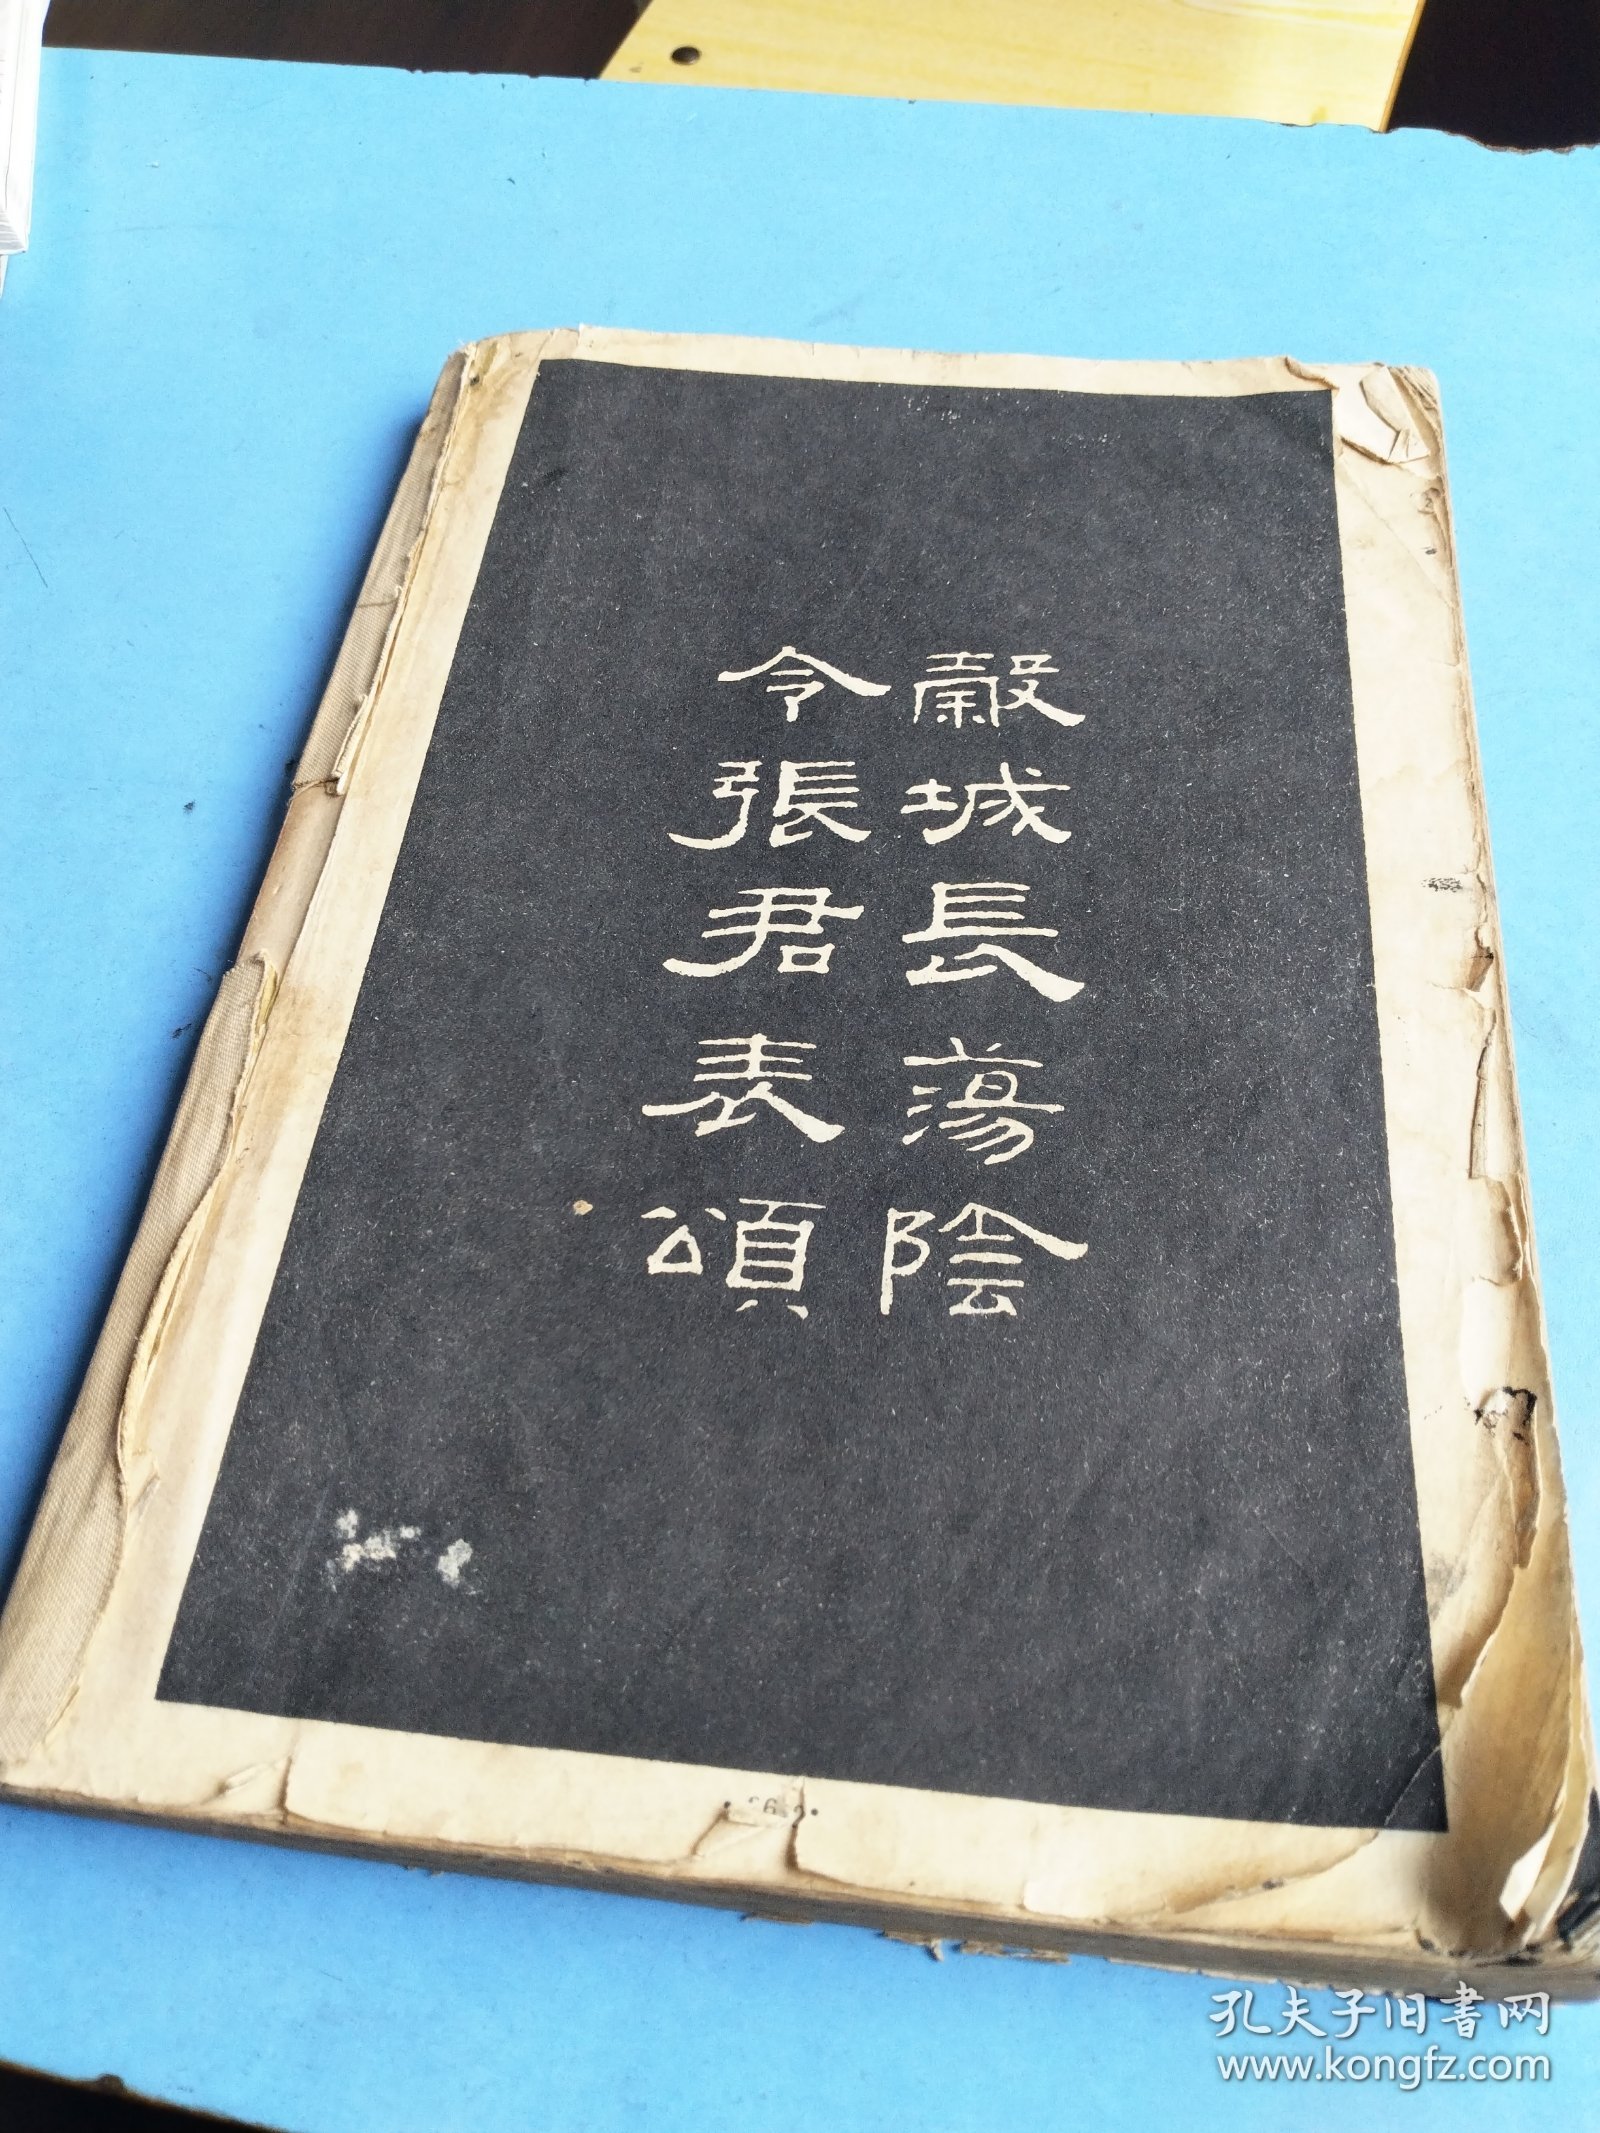 穀城長蕩陰
令張君表頌
孔夫子旧书网
www.kongfz.com